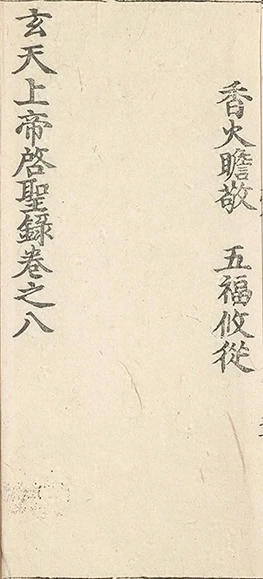 香火瞻敬　五福攸從
玄天上帝啓聖錄卷之八